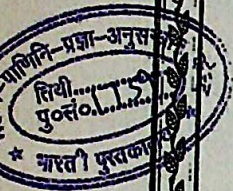 पाणिनि-प्रज्ञा-अनुस
तिथी
पु०सं०
भारती पुस्तका